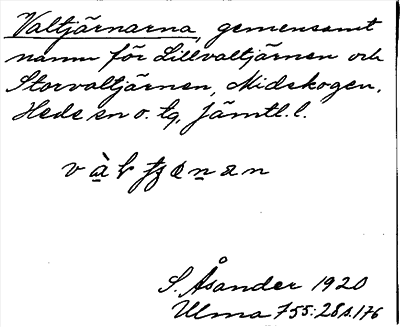 Valtjärnarna, gemensamt
namn för Lillvaltjärnen och
Storvaltjärnen, Midskogen,
Hede sn o. tg, Jämtl. l.
S. Åsander 1920
Ulma 755:28 s. 176